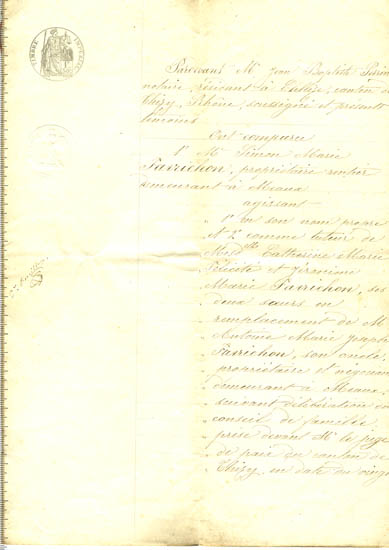 TIMBRE IMPÉRIAL
Pardevant Me Jean Baptiste Perrin
notaire, résidant à Cublize, canton de
Thizy, Rhône, soussigné et présents
témoins
Ont comparu
1° M. Simon Marie
Favrichon, propriétaire rentier
demeurant à Meaux
agissant
1° en son nom propre
et 2° comme tuteur de
Melles Catherine Marie
Félicité et
Marie Favrichon, ses
deux sœurs en
remplacement de M.
Antoine Marie Joseph
Favrichon, son oncle,
propriétaire et négociant
demeurant à Meaux
suivant délibération du
conseil de famille
prise devant Mr le juge
de paix du canton de
Thizy, en date du vingt